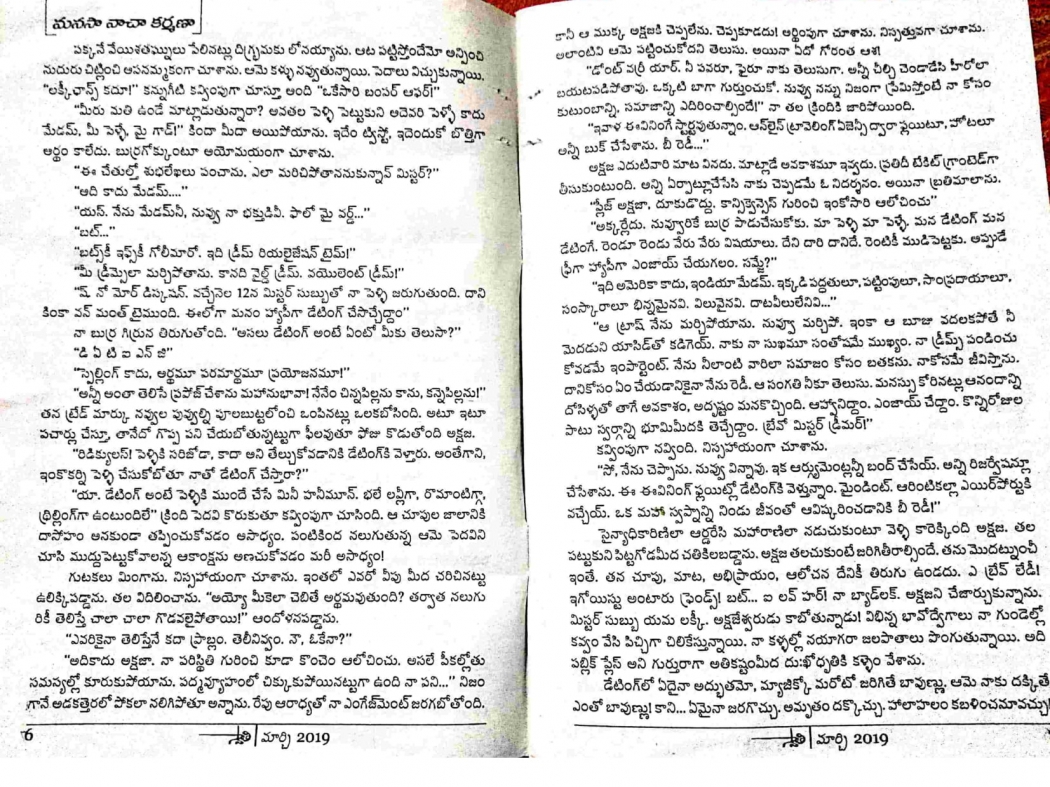 మనసా వాచా కర్మణా
పక్కనే వేయిశతఘ్నులు పేలినట్లు దిగ్భ్రమకు లోనయ్యాను. ఆట పట్టిస్తోందేమో అన్పించి
నుదురు చిట్లించి అపనమ్మకంగా చూశాను. ఆమె కళ్ళు నవ్వుతున్నాయి. పెదాలు విచ్చుకున్నాయి.
“లక్కీఛాన్స్ కదూ!” కన్నుగీటి కవ్వింపుగా చూస్తూ అంది “ఒకేసారి బంపర్ ఆఫర్!”
“మీరు మతి ఉండే మాట్లాడుతున్నారా? అవతల పెళ్ళి పెట్టుకుని అదెవరి పెళ్ళో కాదు
మేడమ్, మీ పెళ్ళే, మై గాడ్!” కిందా మీదా అయిపోయాను. ఇదేం ట్విస్టో, ఇదెందుకో బొత్తిగా
అర్థం కాలేదు. బుర్రగోక్కుంటూ అయోమయంగా చూశాను.
“ఈ చేతుల్తో శుభలేఖలు పంచాను. ఎలా మరిచిపోతాననుకున్నావ్ మిస్టర్?”
“అది కాదు మేడమ్....”
“యస్. నేను మేడమ్‌నీ, నువ్వు నా భక్తుడివీ. ఫాలో మై వర్డ్...”
“బట్...”
“బట్స్‌కీ ఇఫ్స్‌కీ గోలీమారో. ఇది డ్రీమ్ రియలైజేషన్ టైమ్!”
“మీ డ్రీమ్సెలా మర్చిపోతాను. కానది వైల్డ్ డ్రీమ్. వయొలెంట్ డ్రీమ్!”
“ష్. నో మోర్ డిస్కషన్. వచ్చేనెల 12న మిస్టర్ సుబ్బుతో నా పెళ్ళి జరుగుతుంది. దాని
కింకా వన్ మంత్ టైముంది. ఈలోగా మనం హ్యాపీగా డేటింగ్ చేసొచ్చేద్దాం”
నా బుర్ర గిర్రున తిరుగుతోంది. “అసలు డేటింగ్ అంటే ఏంటో మీకు తెలుసా?”
“డి ఏ టి ఐ ఎన్ జి”
“స్పెల్లింగ్ కాదు, అర్థమూ పరమార్థమూ ప్రయోజనమూ!”
“అన్నీ అంతా తెలిసే ప్రపోజ్ చేశాను మహానుభావా! నేనేం చిన్నపిల్లను కాను, కన్నెపిల్లను!”
తన ట్రేడ్ మార్కు నవ్వుల పువ్వుల్ని పూలబుట్టలోంచి ఒంపినట్లు ఒలకబోసింది. అటూ ఇటూ
పచార్లు చేస్తూ, తానేదో గొప్ప పని చేయబోతున్నట్టుగా ఫీలవుతూ ఫోజు కొడుతోంది అక్షజ.
“రిడిక్యులస్! పెళ్ళికి సరిజోడా, కాదా అని తేల్చుకోవడానికి డేటింగ్‌కి వెళ్తారు. అంతేగాని,
ఇంకొకర్ని పెళ్ళి చేసుకోబోతూ నాతో డేటింగ్ చేస్తారా?”
“యా. డేటింగ్ అంటే పెళ్ళికి ముందే చేసే మినీ హనీమూన్. భలే లవ్లీగా, రొమాంటిగ్గా,
థ్రిల్లింగ్‌గా ఉంటుందిలే” క్రింది పెదవి కొరుకుతూ కవ్వింపుగా చూసింది. ఆ చూపుల జాలానికి
దాసోహం అనకుండా తప్పించుకోవడం అసాధ్యం. పంటికింద నలుగుతున్న ఆమె పెదవిని
చూసి ముద్దుపెట్టుకోవాలన్న ఆకాంక్షను అణచుకోవడం మరీ అసాధ్యం!
గుటకలు మింగాను. నిస్సహాయంగా చూశాను. ఇంతలో ఎవరో వీపు మీద చరిచినట్టు
ఉలిక్కిపడ్డాను. తల విదిలించాను. “అయ్యో మీకెలా చెబితే అర్థమవుతుంది? తర్వాత నలుగు
రికీ తెలిస్తే చాలా చాలా గొడవలైపోతాయి!” ఆందోళనపడ్డాను.
“ఎవరికైనా తెలిస్తేనే కదా ప్రాబ్లం. తెలీనివ్వం. నౌ, ఓకేనా?”
“అదికాదు అక్షజా. నా పరిస్థితి గురించి కూడా కొంచెం ఆలోచించు. అసలే పీకల్లోతు
సమస్యల్లో కూరుకుపోయాను. పద్మవ్యూహంలో చిక్కుకుపోయినట్టుగా ఉంది నా పని...” నిజం
గానే అడకత్తెరలో పోకలా నలిగిపోతూ అన్నాను. రేపు ఆరాధ్యతో నా ఎంగేజ్‌మెంట్ జరగబోతోంది.
6 స్వాతి మార్చి 2019
కానీ ఆ ముక్క అక్షజకి చెప్పలేను. చెప్పకూడదు! అర్థింపుగా చూశాను. నిస్సత్తువగా చూశాను.
అలాంటివి ఆమె పట్టించుకోదని తెలుసు. అయినా ఏదో గోరంత ఆశ!
“డోంట్ వర్రీ యార్. నీ పవరూ, ఫైరూ నాకు తెలుసుగా. అన్నీ చీల్చి చెండాడేసి హీరోలా
బయటపడిపోతావు. ఒక్కటి బాగా గుర్తుంచుకో. నువ్వు నన్ను నిజంగా ప్రేమిస్తోంటే నా కోసం
కుటుంబాన్ని, సమాజాన్ని ఎదిరించాల్సిందే!” నా తల క్రిందికి జారిపోయింది.
“ఇవాళ ఈవినింగే స్టార్టవుతున్నాం. ఆన్‌లైన్ ట్రావెలింగ్ ఏజెన్సీ ద్వారా ఫ్లయిటూ, హోటలూ
అన్నీ బుక్ చేసేశాను. బీ రెడీ...”
అక్షజ ఎదుటివారి మాట వినదు. మాట్లాడే అవకాశమూ ఇవ్వదు. ప్రతిదీ టేకిట్ గ్రాంటెడ్‌గా
తీసుకుంటుంది. అన్ని ఏర్పాట్లూచేసేసి నాకు చెప్పడమే ఓ నిదర్శనం. అయినా బ్రతిమాలాను.
“ప్లీజ్ అక్షజా, దూకుడొద్దు. కాన్సిక్వెన్సెస్ గురించి ఇంకోసారి ఆలోచించు”
“అక్కర్లేదు. నువ్వూరికే బుర్ర పాడుచేసుకోకు. మా పెళ్ళి మా పెళ్ళే. మన డేటింగ్ మన
డేటింగే. రెండూ రెండు వేరు వేరు విషయాలు. దేని దారి దానిదే. రెంటికీ ముడిపెట్టకు. అప్పుడే
ఫ్రీగా హ్యాపీగా ఎంజాయ్ చేయగలం. సమ్జే?”
“ఇది అమెరికా కాదు, ఇండియా మేడమ్. ఇక్కడి పద్ధతులూ, పట్టింపులూ, సాంప్రదాయాలూ,
సంస్కారాలూ భిన్నమైనవి. విలువైనవి. దాటవీలులేనివి...”
“ఆ ట్రాష్ నేను మర్చిపోయాను. నువ్వూ మర్చిపో. ఇంకా ఆ బూజు వదలకపోతే నీ
మెదడుని యాసిడ్‌తో కడిగెయ్. నాకు నా సుఖమూ సంతోషమే ముఖ్యం. నా డ్రీమ్స్ పండించు
కోవడమే ఇంపార్టెంట్. నేను నీలాంటి వారిలా సమాజం కోసం బతకను. నాకోసమే జీవిస్తాను.
దానికోసం ఏం చేయడానికైనా నేను రెడీ. ఆ సంగతి నీకూ తెలుసు. మనస్సు కోరినట్లు ఆనందాన్ని
దోసిళ్ళతో తాగే అవకాశం, అదృష్టం మనకొచ్చింది. ఆహ్వానిద్దాం. ఎంజాయ్ చేద్దాం. కొన్నిరోజుల
పాటు స్వర్గాన్ని భూమిమీదకి తెచ్చేద్దాం. బ్రేవో మిస్టర్ డ్రీమర్!”
కవ్వింపుగా నవ్వింది. నిస్సహాయంగా చూశాను.
“సో, నేను చెప్పాను. నువ్వు విన్నావు. ఇక ఆర్గ్యుమెంట్లన్నీ బంద్ చేసేయ్. అన్ని రిజర్వేషన్లూ
చేసేశాను. ఈ ఈవినింగ్ ఫ్లయిట్లో డేటింగ్‌కి వెళ్తున్నాం. మైండింట్. ఆరింటికల్లా ఎయిర్‌పోర్టుకి
వచ్చేయ్. ఒక మహా స్వప్నాన్ని నిండు జీవంతో ఆవిష్కరించడానికి బీ రెడీ!”
సైన్యాధికారిణిలా ఆర్డరేసి మహారాణిలా నడుచుకుంటూ వెళ్ళి కారెక్కింది అక్షజ. తల
పట్టుకుని పిట్టగోడమీద చతికిలబడ్డాను. అక్షజ తలచుకుంటే జరిగితీరాల్సిందే. తను మొదట్నుంచీ
ఇంతే. తన చూపు, మాట, అభిప్రాయం, ఆలోచన దేనికీ తిరుగు ఉండదు. ఎ బ్రేవ్ లేడీ!
ఇగోయిస్టు అంటారు ఫ్రెండ్స్! బట్... ఐ లవ్ హర్! నా బ్యాడ్‌లక్. అక్షజని చేజార్చుకున్నాను.
మిస్టర్ సుబ్బు యమ లక్కీ. అక్షజేశ్వరుడు కాబోతున్నాడు! విభిన్న భావోద్వేగాలు నా గుండెల్లో
కవ్వం వేసి పిచ్చిగా చిలికేస్తున్నాయి. నా కళ్ళల్లో నయాగరా జలపాతాలు పొంగుతున్నాయి. అది
పబ్లిక్ ప్లేస్ అని గుర్తురాగా అతికష్టంమీద దుఃఖోధృతికి కళ్ళెం వేశాను.
డేటింగ్‌లో ఏదైనా అద్భుతమో, మ్యాజిక్కో మరోటో జరిగితే బావుణ్ణు. ఆమె నాకు దక్కితే
ఎంతో బావుణ్ణు! కాని... ఏమైనా జరగొచ్చు. అమృతం దక్కొచ్చు. హాలాహలం కబళించనూవచ్చు!
స్వాతి మార్చి 2019